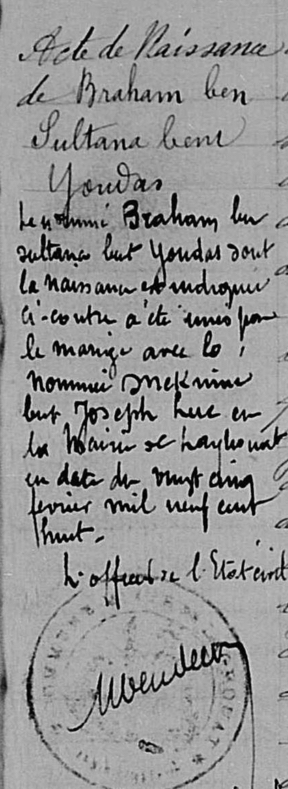 Acte de Naissance
de Braham ben
Sultana bent
Youdas
Le nommé Braham ben
sultana bent Youdas dont
la naissance est indiquée
ci-contre a été unis par
le mariage avec la
nommée
bent Joseph Luc en
la Mairie de Laghouat
en date du vingt cinq
février mil neuf cent
huit.
L'officier de l'Etat civil